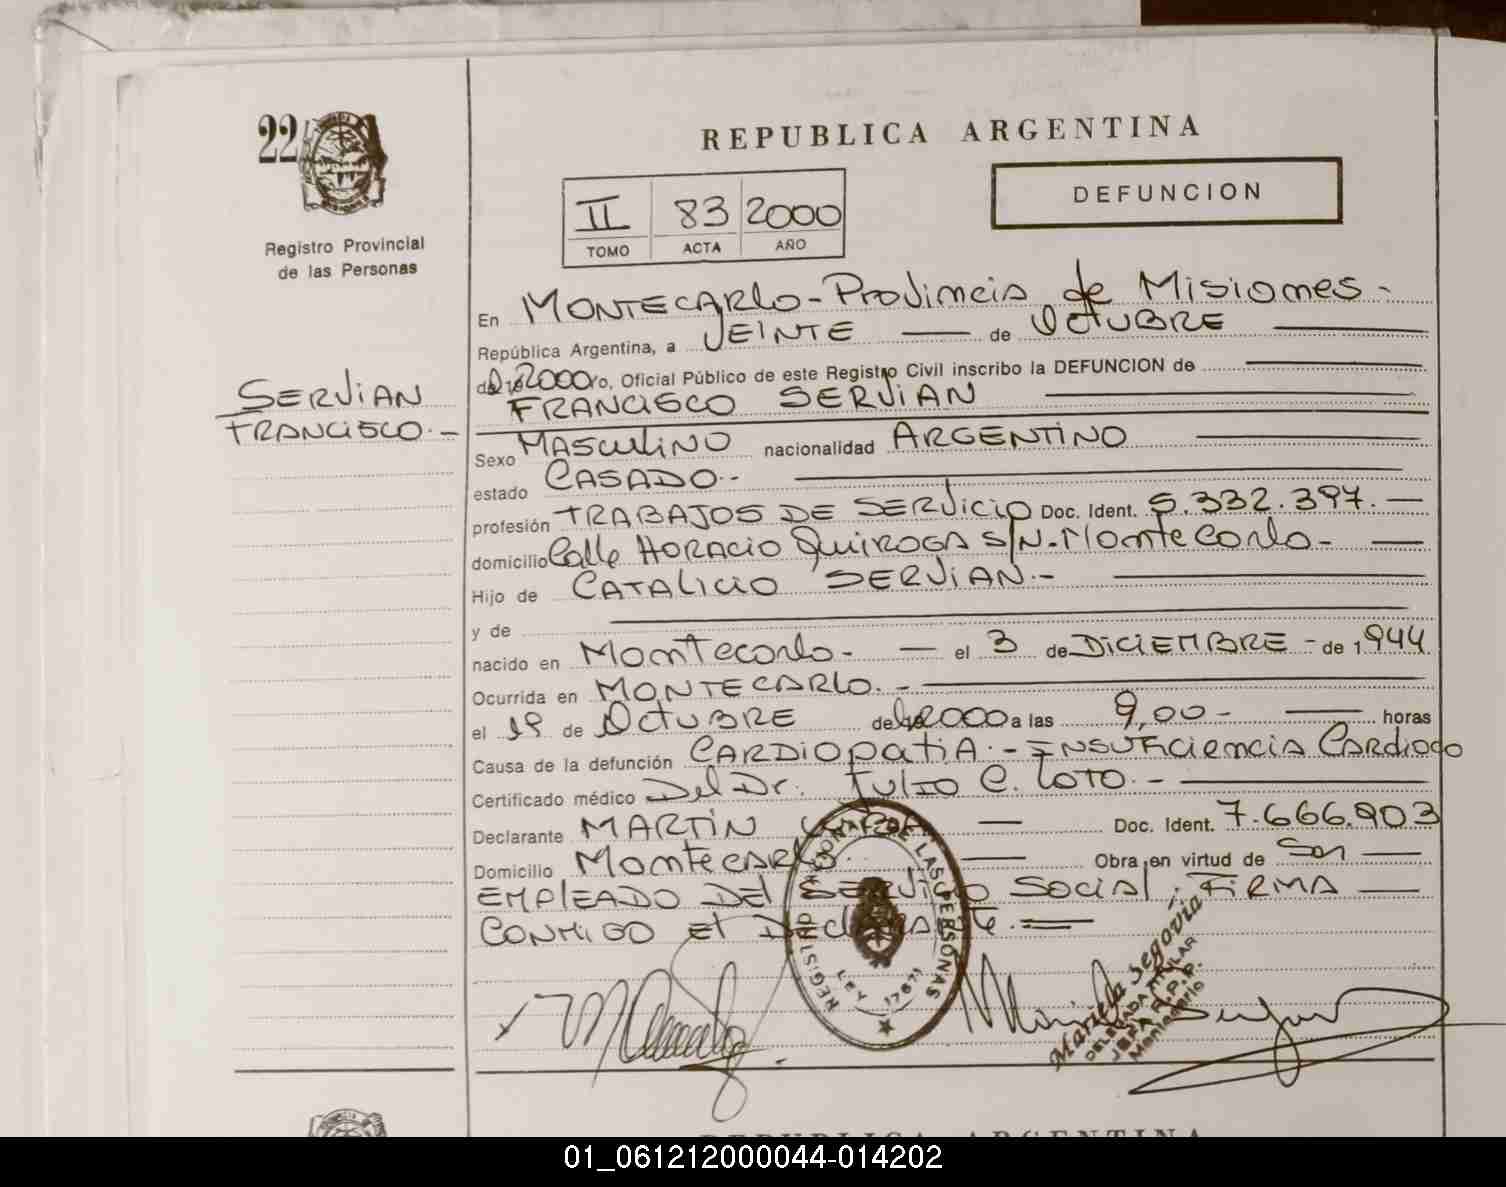 22
Registro Provincial
de las Personas
SERVIAN
FRANCISCO.-
REPUBLICA ARGENTINA
DEFUNCION
II 83 2000
TOMO ACTA AÑO
En MONTECARLO-Provincia de Misiones-
República Argentina, a VEINTE de OCTUBRE
2000 o, Oficial Público de este Registro Civil inscribo la DEFUNCION de
FRANCISCO SERVIAN
Sexo MASCULINO nacionalidad ARGENTINO
estado CASADO.-
profesión TRABAJOS DE SERVICIO Doc. Ident. 5.332.397.-
domicilio Calle HORACIO QUIROGA S/N.-Montecarlo-
Hijo de CATALICIO SERVIAN.-
y de
nacido en Montecarlo- el 3 de DICIEMBRE - de 1944
Ocurrida en MONTECARLO.-
el 19 de OCTUBRE de 2000 a las 9,00- horas
Causa de la defunción CARDIOPATIA.- INSUFICIENCIA CARDIACA
Certificado médico Del Dr. TULIO C. LOTO.-
Declarante MARTIN Doc. Ident. 7.666.903
Domicilio Montecarlo. Obra en virtud de Ser
EMPLEADO DEL SERVICIO SOCIAL; FIRMA
CONMIGO EL DECLARANTE.
REGISTRO DE LAS PERSONAS
LEY 17671
Mariela Segovia
DELEGADA TITULAR
Montecarlo
REPUBLICA ARGENTINA
01_061212000044-014202